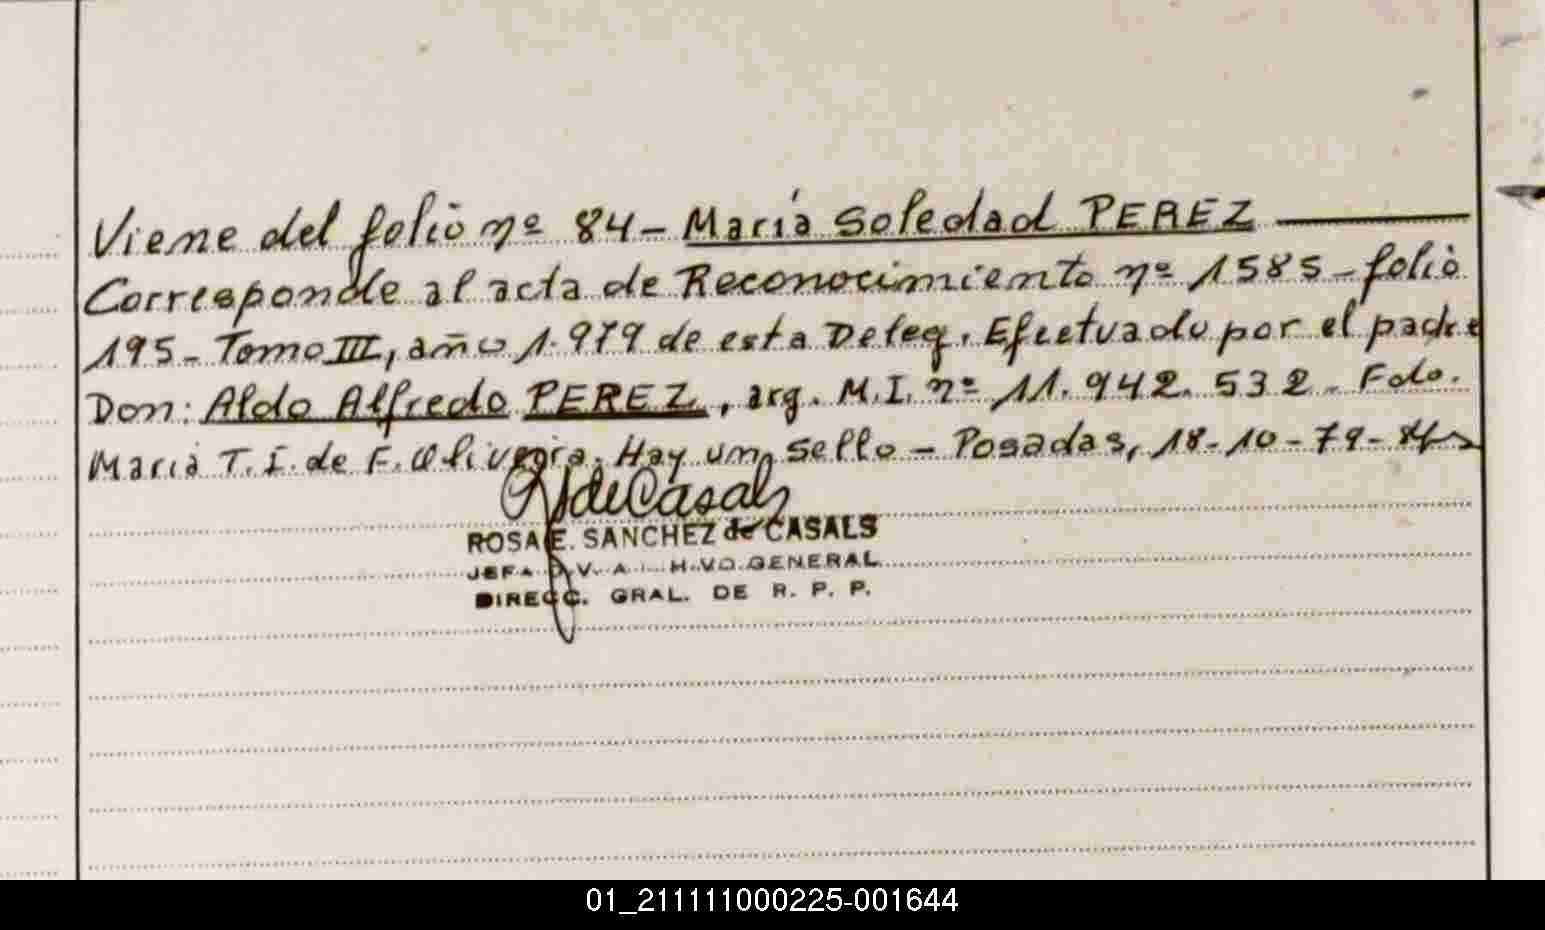 Viene del folio nº 84 - María Soledad PEREZ
Corresponde al acta de Reconocimiento nº 1585 - folio
195 - Tomo III, año 1.979 de esta Deleg. Efectuado por el padre
Don: Aldo Alfredo PEREZ, arg. M.I. nº 11.942.532 - Fdo.
María T. I. de F. Oliveira. Hay un sello - Posadas, 18-10-79 -
de Casals
ROSA E. SANCHEZ de CASALS
JEFA GENERAL
DIRECC. GRAL. DE R. P. P.
01_211111000225-001644